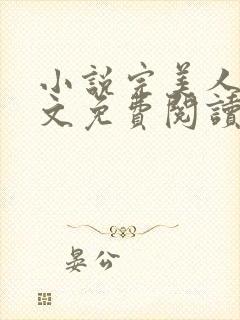 小説完美人
文免費閱讀
晏公